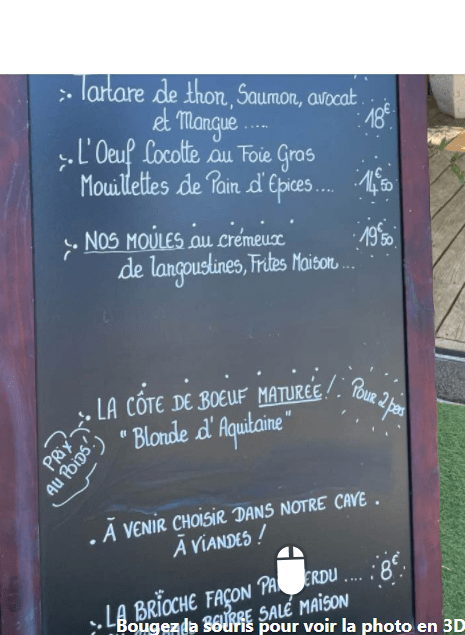 Tartare de thon, Saumon, avocat
et Mangue ..... 18€
L'Oeuf Cocotte au Foie Gras
Mouillettes de Pain d'Epices.... 14€50
NOS MOULES au crémeux 19€50
de langoustines, Frites Maison...
LA CÔTE DE BOEUF MATURÉE ! Pour 2 pers
"Blonde d'Aquitaine"
PRIX
AU POIDS!
. À VENIR CHOISIR DANS NOTRE CAVE .
À VIANDES !
LA BRIOCHE FAÇON ERDU .... 8€
BEURRE SALÉ MAISON
Bougez la souris pour voir la photo en 3D